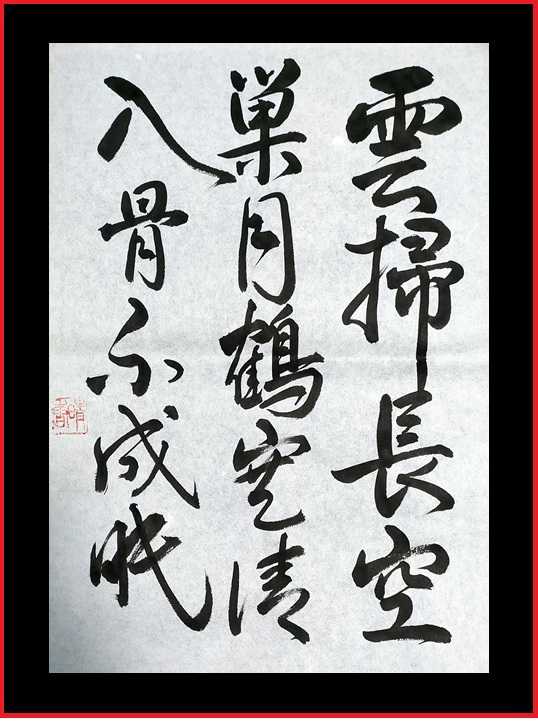 雲掃長空
巣月鶴寒清
入骨不成眠